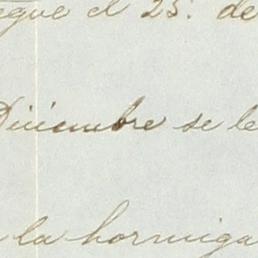 egue el 25. de
Diciembre se le
la hormiga